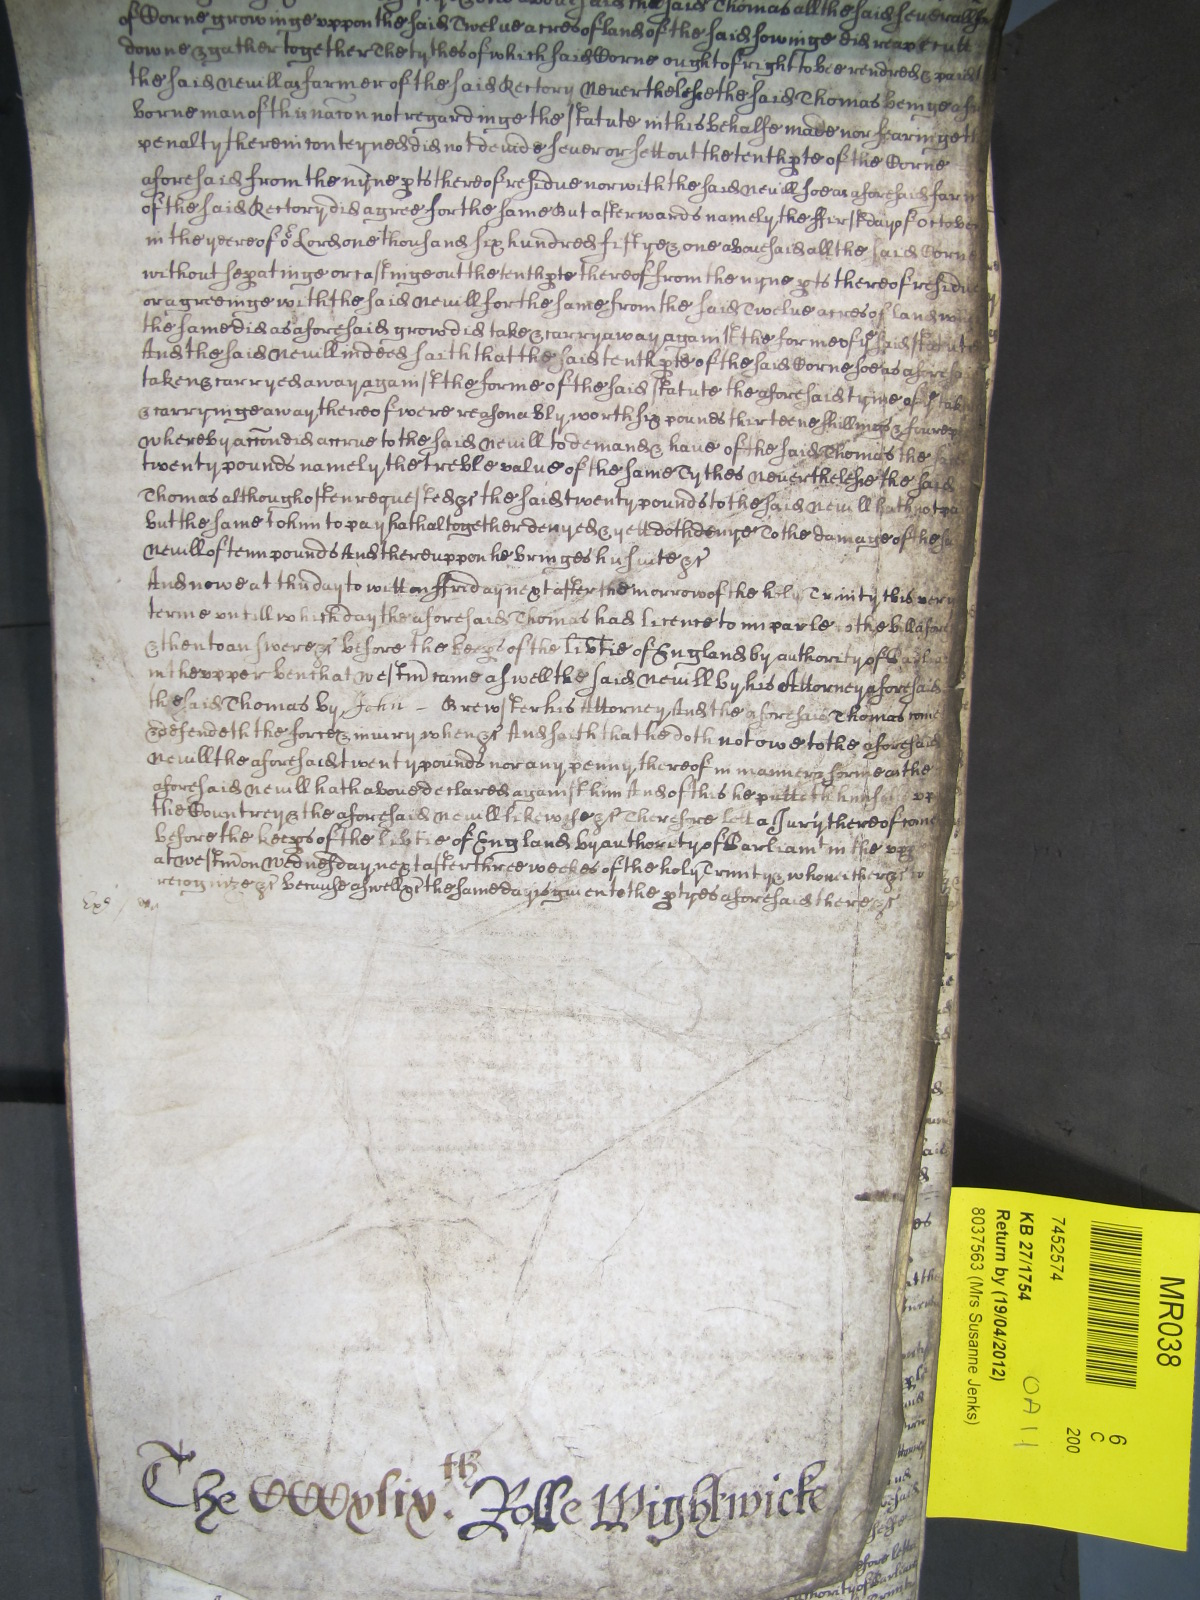 aboue said the said Thomas all the said seuerall
of Corne growinge vppon the said Twelue acres of land of the said sowinge did reap cutt
downe & gather together The tythes of which said Corne ought of right to bee rendred & paid
the said Nevill as farmer of the said Rectory Neverthelesse the said Thomas beinge a
borne man of this nacon not regardinge the statute in this behalfe made nor fearinge the
penalty therein conteyned did not devide sever or sett out the tenth pte of the Corne
aforesaid from the nyne pts thereof residue nor with the said Nevill soe as aforesaid farm
of the said Rectory did agree for the same But afterwards namely the ffirst day of October
in the yere of or Lord one thousand six hundred fiftye & one abouesaid all the said Corne
without sepatinge or castinge out the tenth pte thereof from the nyne pts thereof residue
or agreeinge with the said Nevill for the same from the said Twelue acres of land
the same did as aforesaid grow did take & carry away against the forme of ye said statute
And the said Nevill indeed saith that the said tenth pte of the said Corne soe as aforesaid
taken & carryed away against the forme of the said statute the aforesaid tyme of ye
& carryinge away thereof were reasonably worth six pounds thirteene shillings & foure
whereby accon did accrue to the said Nevill to demand & haue of the said Thomas the said
twenty pounds namely the treble value of the same Tythes Neverthelesse the said
Thomas although often requested &c the said twenty pounds to the said Nevill hath not
but the same to him to pay hath altogether denyed & yett doth denye To the damage of the
Nevill of tenn pounds And thereuppon he bringes his suite &c
And nowe at this day to witt on ffriday next after the morrow of the holy Trinity this very
terme vntill which day the aforesaid Thomas had licence to imparle to the bill
& then to answere &c before the keeps of the libtie of England by authority of
in the vpper bench at westm came aswell the said Nevill by his Attorney aforesaid
the said Thomas by John - Brewster his Attorney And the aforesaid Thomas come
& defendeth the force & iniury when &c And saith that he doth not owe to the aforesaid
Nevill the aforesaid twenty pounds nor any penny thereof in manner & forme as the
aforesaid Nevill hath aboue declared against him And of this he putteth himself vp
the Countrey & the aforesaid Nevill likewise &c Therefore lett a Jury thereof come
before the keeps of the libtie of England by authority of Parliamt in the vpp
at westm on wednesday next after three weekes of the holy Trinity & who neither &c to
recognize &c because aswell &c the same day is giuen to the ptyes aforesaid there &c
The CCCxlix.th Rolle Wightwicke
MR038
6
C
200
7452574
KB 27/1754
OA 11
Return by (19/04/2012)
8037563 (Mrs Susanne Jenks)